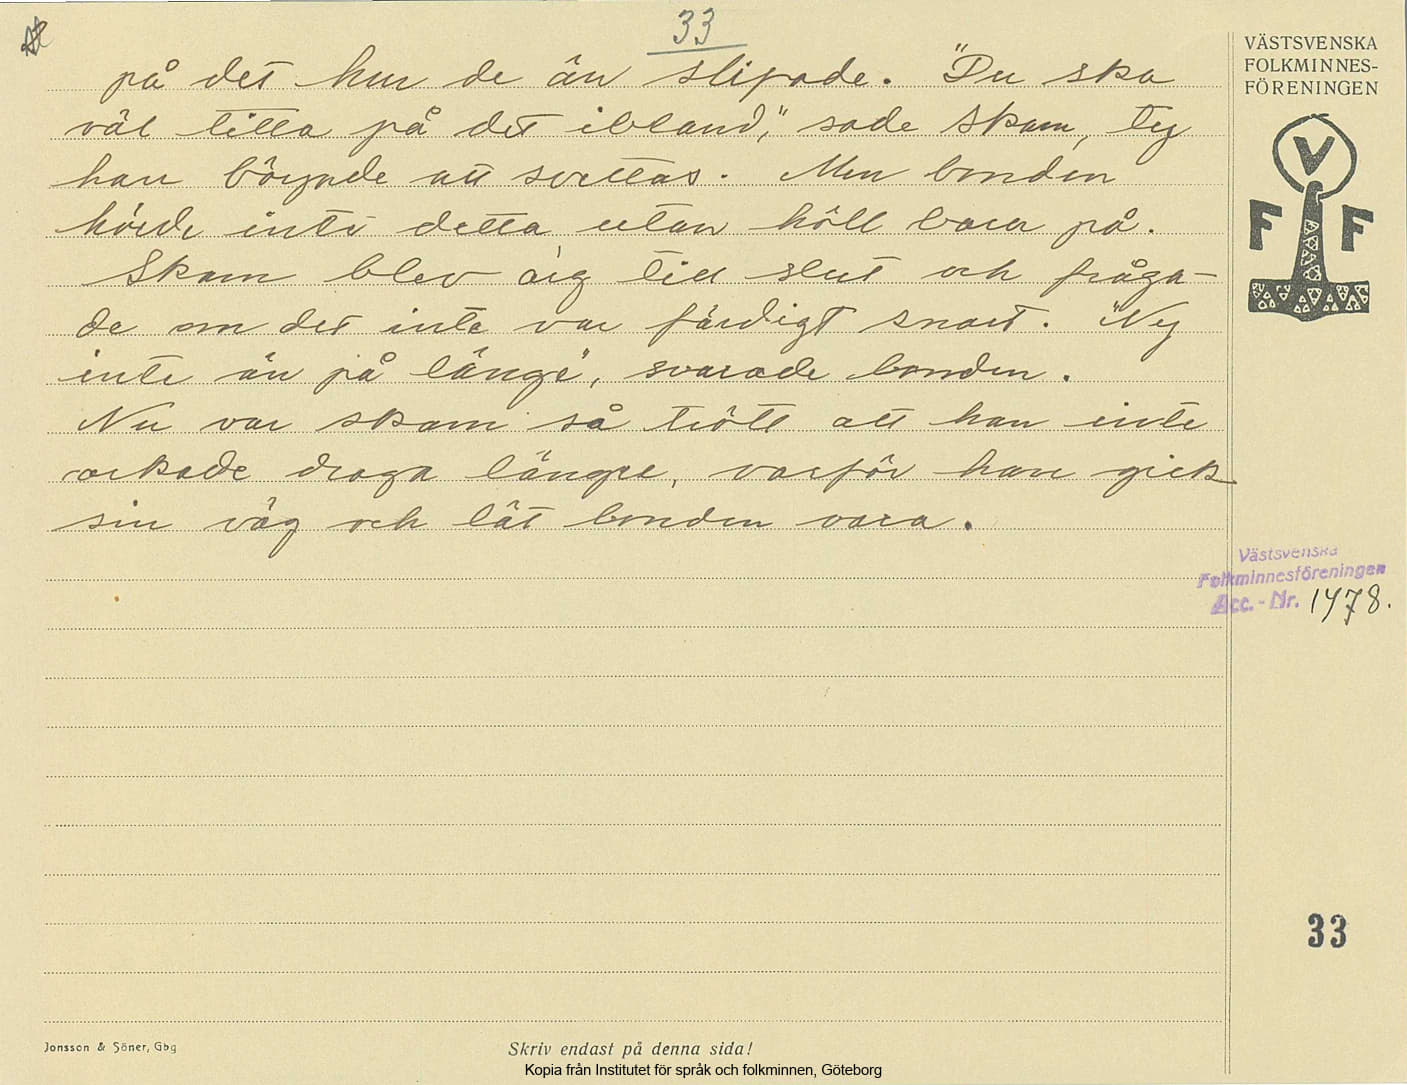 33
på det hur de än slipade. "Du ska
väl titta på det ibland," sade Skam, ty
han började att svettas. Men bonden
hörde inte detta utan höll bara på.
Skam blev arg till slut och fråga-
de om det inte var färdigt snart. "Nej
inte än på länge", svarade bonden.
Nu var skam så trött att han inte
orkade draga längre, varför han gick
sin väg och lät bonden vara.
VÄSTSVENSKA
FOLKMINNES-
FÖRENINGEN
V
F F
Västsvenska
Folkminnesföreningen
Acc. - Nr. 1478.
33
Jonsson & Söner, Gbg
Skriv endast på denna sida!
Kopia från Institutet för språk och folkminnen, Göteborg